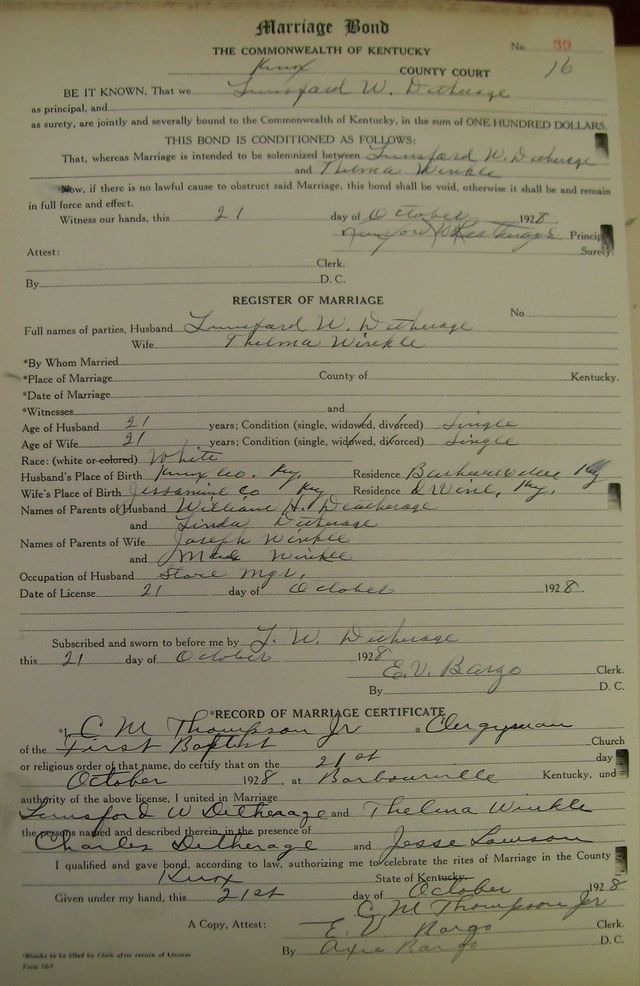 Marriage Bond
THE COMMONWEALTH OF KENTUCKY
No. 39
Knox COUNTY COURT 16
BE IT KNOWN, That we Lunsford W. Detherage
as principal, and
as surety, are jointly and severally bound to the Commonwealth of Kentucky, in the sum of ONE HUNDRED DOLLARS.
THIS BOND IS CONDITIONED AS FOLLOWS:
That, whereas Marriage is intended to be solemnized between Lunsford W. Detherage
and Thelma Winkle
Now, if there is no lawful cause to obstruct said Marriage, this bond shall be void, otherwise it shall be and remain
in full force and effect.
Witness our hands, this 21 day of October 1928.
Principal
Attest: Surety
Clerk.
By D. C.
REGISTER OF MARRIAGE
No.
Full names of parties, Husband Lunsford W. Detherage
Wife Thelma Winkle
*By Whom Married
*Place of Marriage County of Kentucky.
*Date of Marriage
*Witnesses and
Age of Husband 21 years; Condition (single, widowed, divorced) Single
Age of Wife 21 years; Condition (single, widowed, divorced) Single
Race: (white or colored) White
Husband's Place of Birth Knox Co. Ky. Residence Ky
Wife's Place of Birth Jessamine Co Ky Residence Ky.
Names of Parents of Husband William H. Deatherage
and Linda Detherage
Names of Parents of Wife Joseph Winkle
and Winkle
Occupation of Husband Store Mgr.
Date of License 21 day of October 1928.
Subscribed and sworn to before me by L. W. Detherage
this 21 day of October 1928
E. V. Bargo Clerk.
By D. C.
*RECORD OF MARRIAGE CERTIFICATE
*I, C M Thompson Jr a Clergyman
of the First Baptist Church
or religious order of that name, do certify that on the 21st day
October 1928, at Barbourville Kentucky, und
authority of the above license, I united in Marriage
Lunsford W Detherage and Thelma Winkle
the persons named and described therein, in the presence of
Charles Detherage and Jesse Lawson
I qualified and gave bond, according to law, authorizing me to celebrate the rites of Marriage in the County
Knox State of Kentucky.
Given under my hand, this 21st day of October 1928
C M Thompson Jr
A Copy, Attest: E. V. Bargo Clerk.
By Axie Bargo D. C.
*Blanks to be filled by Clerk after return of License
Form 560